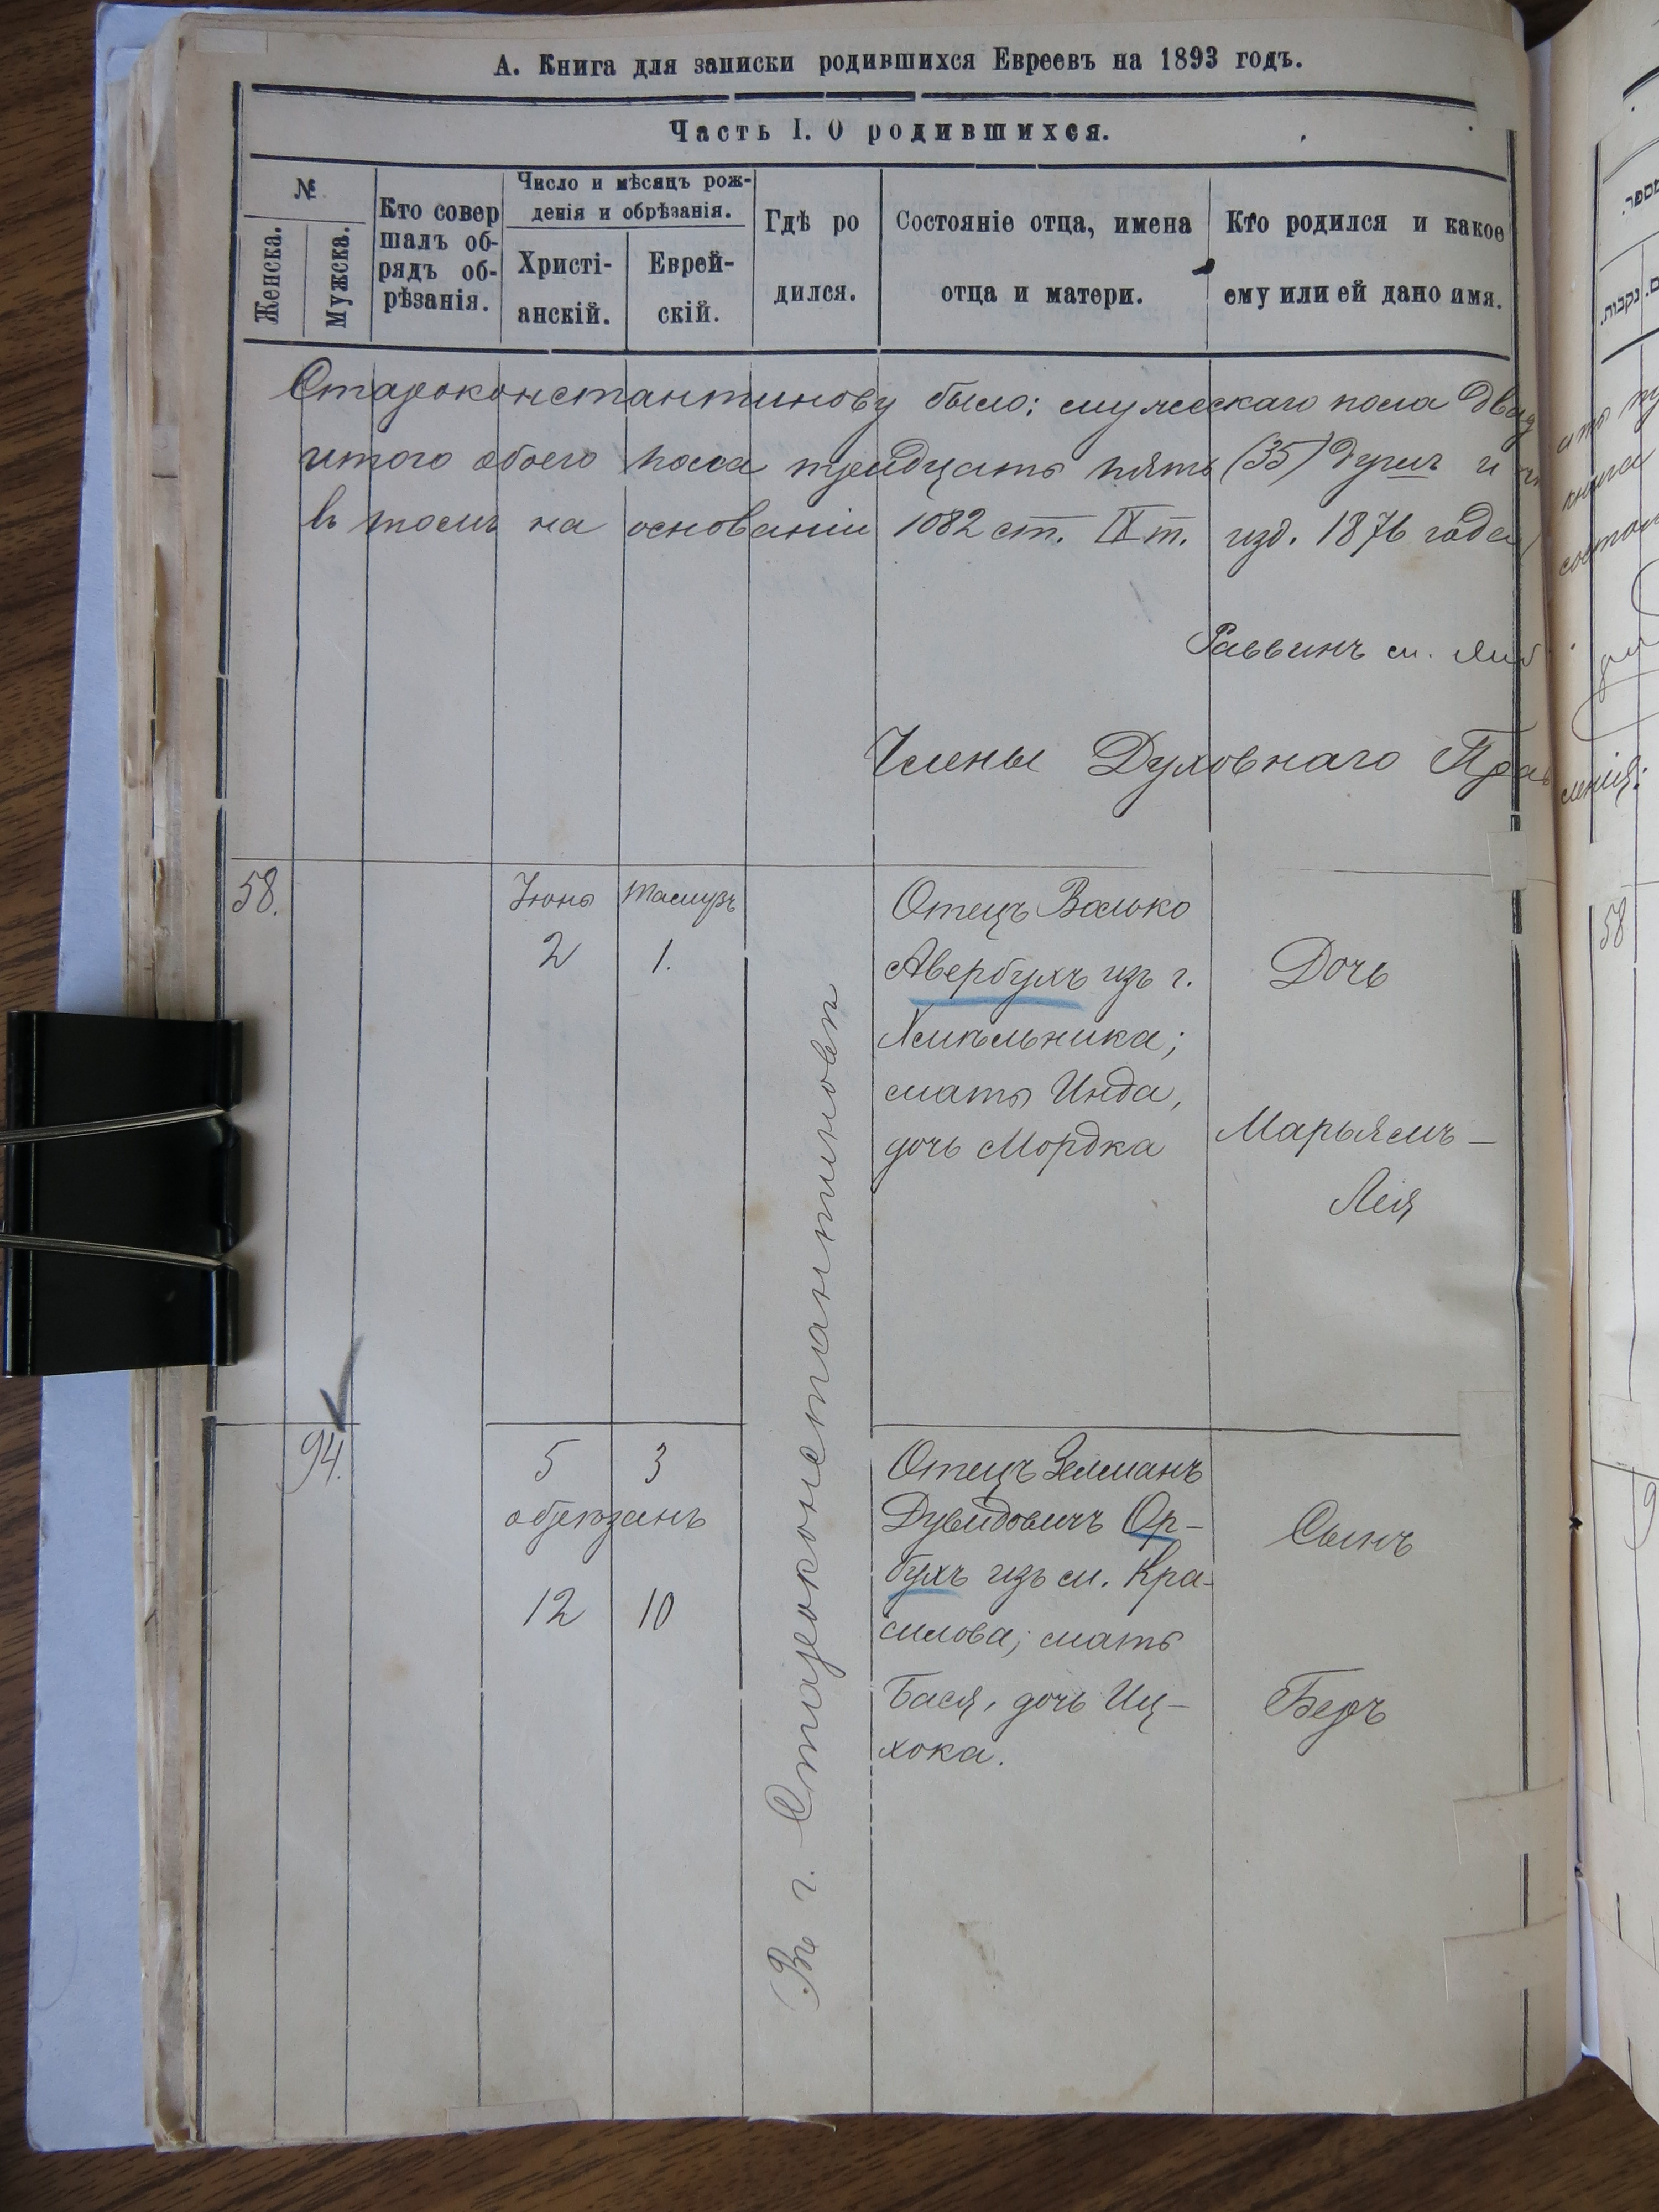 А. Книга для записки родившихся Евреевъ на 1893 годъ.
Часть I. О родившихся.
№
Женска.
Мужска.
Кто совер
шалъ об-
рядъ об-
рѣзанія.
Число и мѣсяцъ рож-
денія и обрѣзанія.
Христі-
анскій.
Еврей-
скій.
Гдѣ ро
дился.
Состояніе отца, имена
отца и матери.
Кто родился и какое
ему или ей дано имя.
Староконстантинову было: мужескаго пола
итого обоего пола тридцать пять (35) душъ и
въ томъ на основаніи 1082 ст. IX т. изд. 1876 года
Раввинъ м.
Члены Духовнаго Прав
ленія:
58.
Іюнь
2
Тамузъ
1.
Въ г. Староконстантиновѣ
Отецъ Волько
Авербухъ изъ г.
Хмѣльника;
мать Инда,
дочь Мордка
Дочь
Марьямъ-
Лея
94.
5
3
обрѣзанъ
12
10
Отецъ Зельманъ
Дувидовичъ Ор-
бухъ изъ м. Кра-
силова; мать
Бася, дочь Иц-
хока.
Сынъ
Беръ
מספר.
נקבות.
58
9